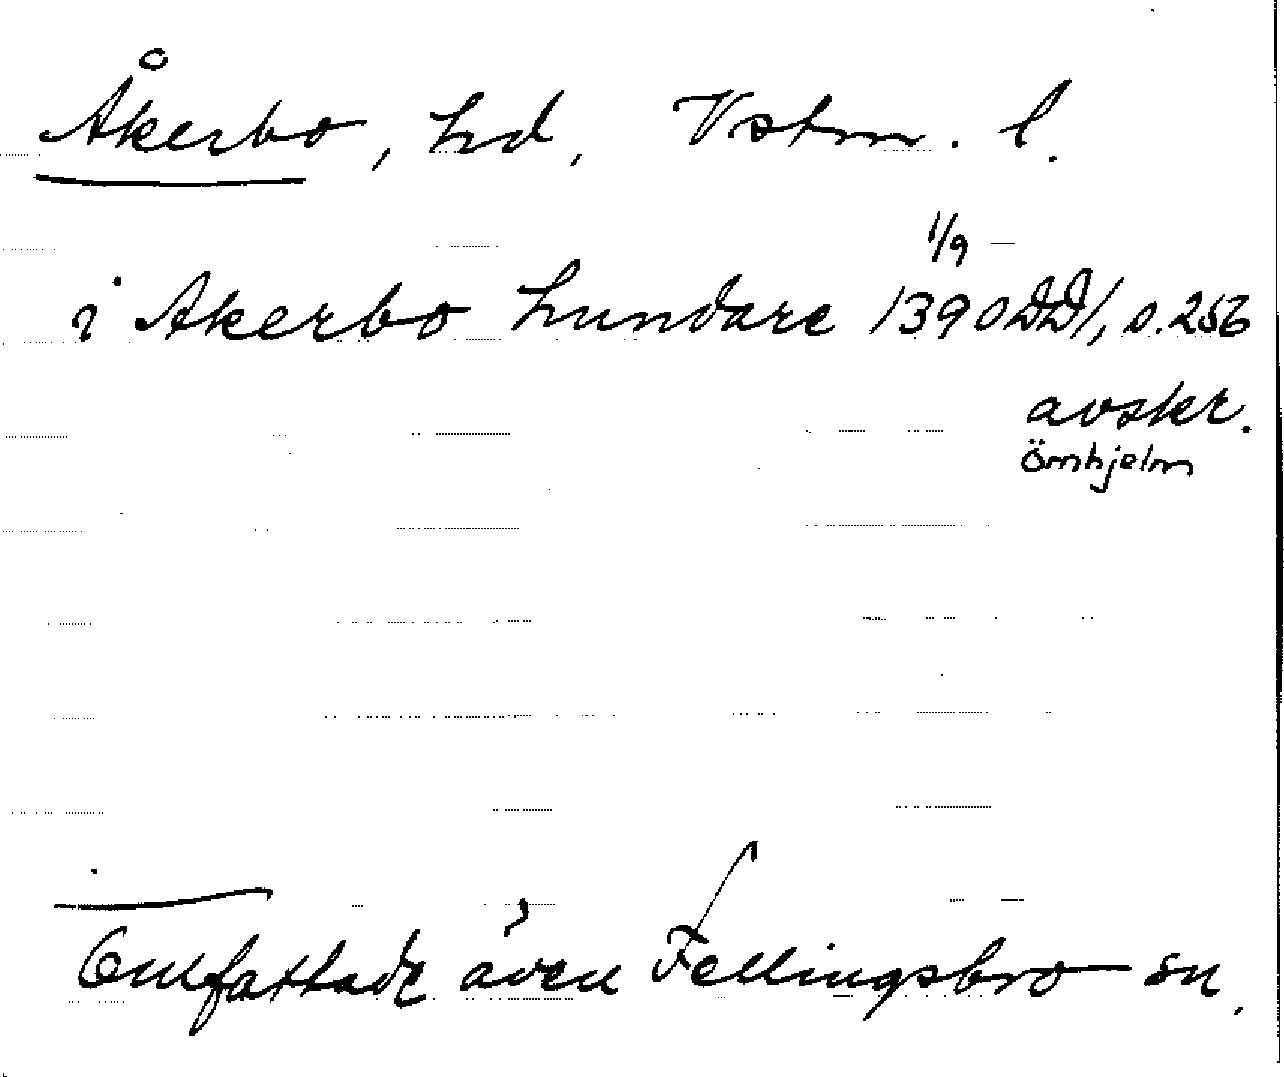 Åkerbo, hd, Vstm. l.
1/9
i Akerbo hundare 1390 DD/, s. 256
avskr.
Örnhjelm
Omfattade även Fellingsbro sn.